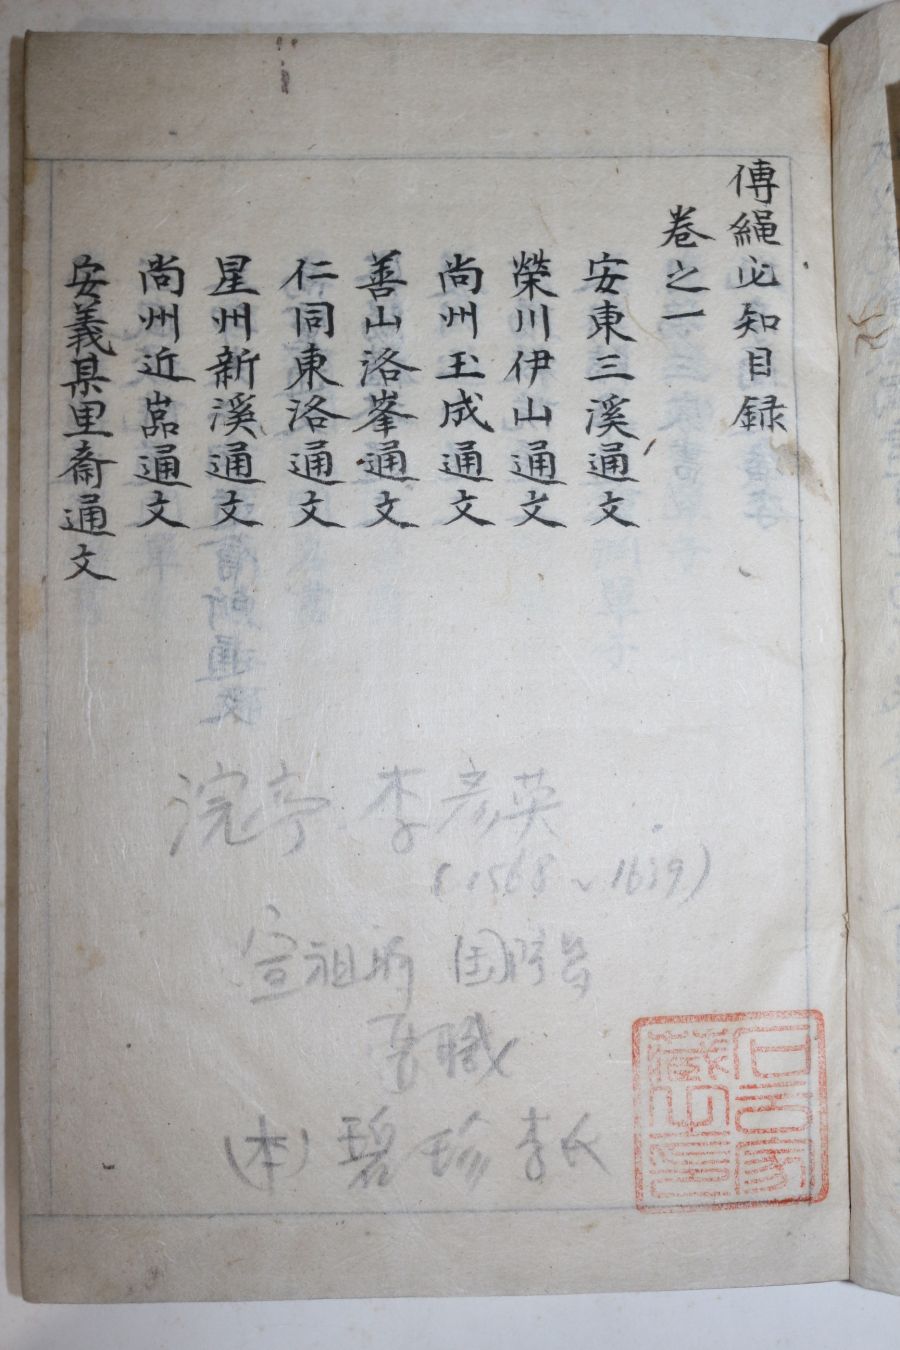 傅繩必知目録
卷之一
安東三溪通文
榮川伊山通文
尚州玉成通文
善山洛峯通文
仁同東洛通文
星州新溪通文
尚州近嵓通文
安義某里齋通文
浣亭 李彦英
(1568~1639)
宣祖時
職
(本) 碧珍李氏